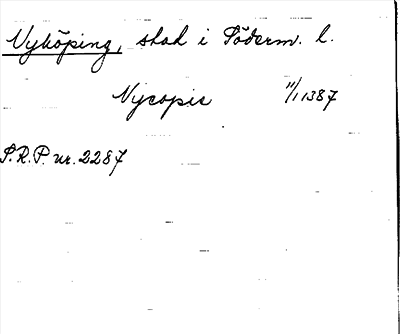 Nyköping, stad i Söderm. l.
Nycopie 11/1 1387
S.R.P. nr. 2287